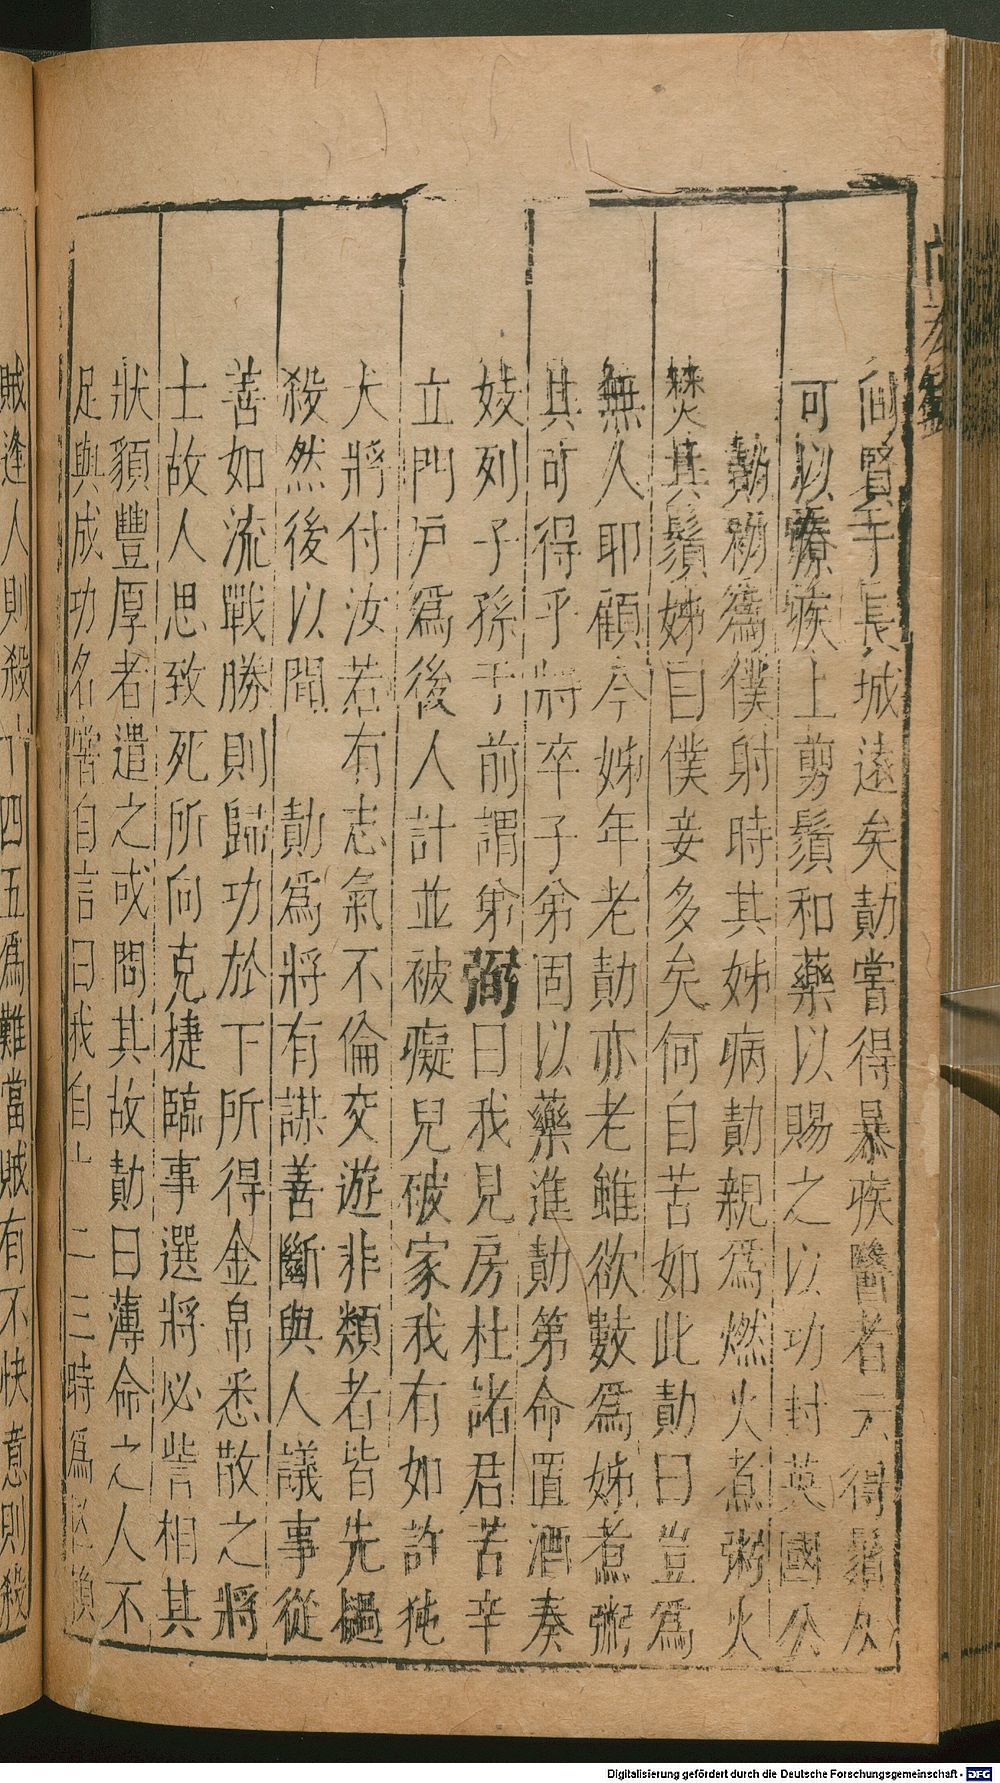 尚友錄
向賢于長城遠矣勣嘗得暴疾醫者云得鬚灰
可以療疾上剪鬚和藥以賜之以功封英國公
勣初爲僕射時其姊病勣親爲燃火煮粥火
焚其鬚姊曰僕妾多矣何自苦如此勣曰豈爲
無人耶顧今姊年老勣亦老雖欲數爲姊煮粥
其可得乎將卒子弟固以藥進勣第命置酒奏
妓列子孫于前謂弟弼曰我見房杜諸君苦辛
立門戸爲後人計並被癡兒破家我有如許㹠
犬將付汝若有志氣不倫交遊非類者皆先檛
殺然後以聞 勣爲將有謀善斷與人議事從
善如流戰勝則歸功於下所得金帛悉散之將
士故人思致死所向克捷臨事選將必訾相其
狀貌豐厚者遣之或問其故勣曰薄命之人不
足與成功名嘗自言曰我自十二三時爲
賊逢人則殺十四五爲難當賊有不快意則殺
Digitalisierung gefördert durch die Deutsche Forschungsgemeinschaft - DFG